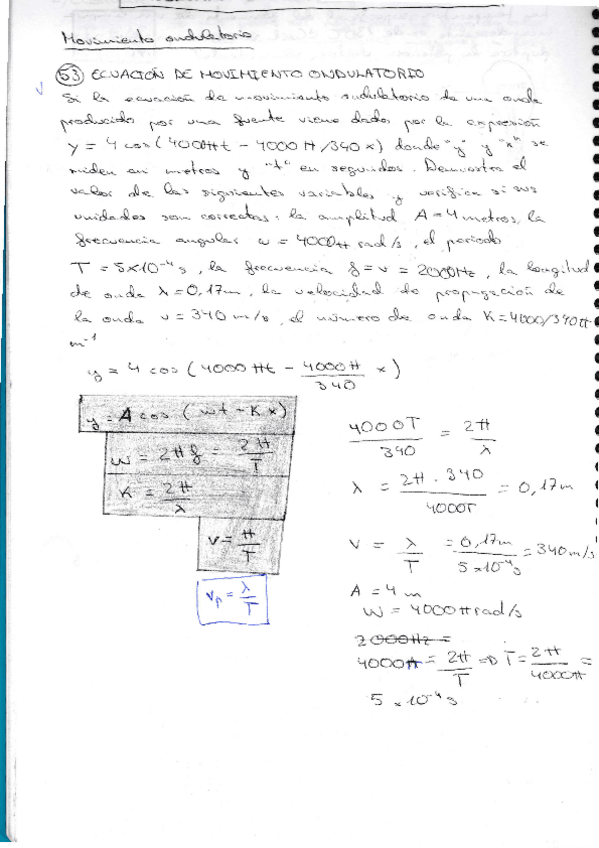 Movimiento ondulatorio
53 ECUACIÓN DE MOVIMIENTO ONDULATORIO
Si la ecuación de movimiento ondulatorio de una onda
producido por una fuente viene dados por la expresión
y = 4 cos (4000πt - 4000π/340 x) donde "y" y "x" se
miden en metros y "t" en segundos. Demuestra el
valor de las siguientes variables y verifica si sus
unidades son correctas: la amplitud A = 4 metros, la
frecuencia angular w = 4000π rad/s, el periodo
T = 5x10⁻⁴s, la frecuencia f = ν = 2000Hz, la longitud
de onda λ = 0,17m, la velocidad de propagación de
la onda v = 340 m/s, el número de onda K = 4000/340π
m⁻¹
y = 4 cos (4000πt - 4000π/340 x)
y = A cos (wt - Kx)
w = 2πf = 2π/T
K = 2π/λ
v = π/T
Vp = λ/T
4000T/340 = 2π/λ
λ = 2π · 340/4000T = 0,17m
V = λ/T = 0,17m/5x10⁻⁴s = 340m/s
A = 4m
W = 4000π rad/s
2000Hz =
4000π = 2π/T => T = 2π/4000π =
5x10⁻⁴s